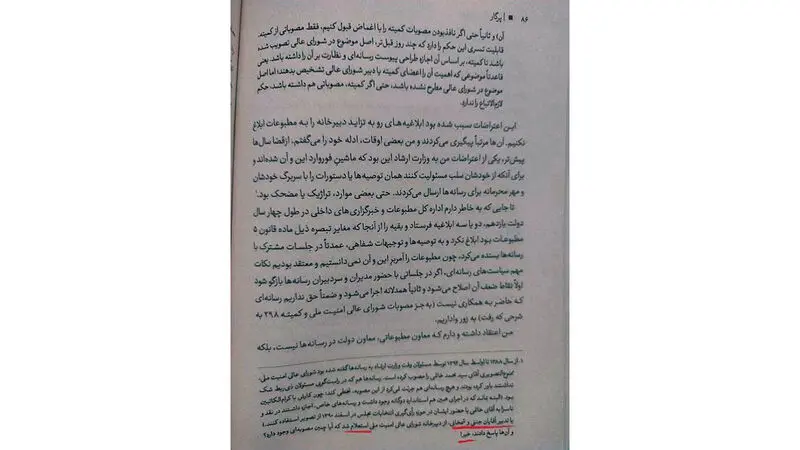 ۸۶ ■ | پرگار
آن) و ثانیاً حتی اگر نافذبودن مصوبات کمیته را با اغماض قبول کنیم، فقط مصوباتی از کمیته
قابلیت تسری این حکم را دارد که چند روز قبل‌تر، اصل موضوع در شورای عالی تصویب شده
باشد تا کمیته، بر اساس آن اجازه طراحی پیوست رسانه‌ای و نظارت بر آن را داشته باشد. یعنی
قاعدتاً موضوعی که اهمیت آن را اعضای کمیته یا دبیر شورای عالی تشخیص بدهند؛ اما اصل
موضوع در شورای عالی مطرح نشده باشد، حتی اگر کمیته، مصوباتی هم داشته باشد، حکم
لازم‌الاتباع را ندارد.
ایـن اعتراضات سبب شده بود ابلاغیه‌های رو به تزاید دبیرخانه را به مطبوعات ابلاغ
نکنیم. آن‌ها مرتباً پیگیری می‌کردند و من بعضی اوقات، ادله خود را می‌گفتم. ازقضا سال‌ها
پیش‌تر، یکی از اعتراضات من به وزارت ارشاد این بود که ماشینِ فوروارد این و آن شده‌اند و
برای آنکه از خودشان سلب مسئولیت کنند همان توصیه‌ها یا دستورات را با سربرگ خودشان
و مهر محرمانه برای رسانه‌ها ارسال می‌کردند. حتی بعضی موارد، تراژیک یا مضحک بود.¹
تا جایی که به خاطر دارم اداره کل مطبوعات و خبرگزاری‌های داخلی در طول چهار سال
دولت یازدهم، دو یا سه ابلاغیه فرستاد و بقیه را از آنجا که مغایر تبصره ذیل ماده قانون ۵
مطبوعـات بـود ابلاغ نکرد و به توصیه‌ها و توجیهات شفاهی، عمدتاً در جلسات مشترک با
رسانه‌ها بسنده می‌کرد، چون مطبوعات را آمربَر این و آن نمی‌دانستیم و معتقد بودیم نکات
مهم سیاست‌های رسانه‌ای، اگر در جلساتی با حضور مدیران و سردبیران رسانه‌ها بازگو شود
اولاً نقاط ضعف آن اصلاح می‌شود و ثانیاً همدلانه اجرا می‌شود و ضمناً حق نداریم رسانه‌ای
کـه حاضـر به همکاری نیست (به‌جز مصوبات شورای عالی امنیت ملی و کمیتـه ۲۹۸ به
شرحی که رفت) به زور واداریم.
مـن اعتقاد داشته و دارم که معاون مطبوعاتی، معاون دولت در رسانه‌ها نیست، بلکه
۱. از سال ۱۳۸۸ تا اواسط سال ۱۳۹۲ توسط مسئولان وقت وزارت ارشاد به رسانه‌ها گفته شده بود شورای عالی امنیت ملی،
ممنوع‌التصویری آقای سید محمد خاتمی را مصوب کرده است. رسانه‌ها هم که در راست‌گویی مسئولان ذی‌ربط شک
نداشتند باور کرده بودند و هیچ رسانه‌ای هم جرئت
بود. (البته بماند که در اجرای همین هم استاندارد دوگانه وجود داشت و رسانه‌های خاص، اجازه داشتند در نقد و
ناسزا به آقای خاتمی یا حضور ایشان در حوزه رأی‌گیری انتخابات مجلس در اسفند ۱۳۹۰ از تصویر استفاده کنند.)
با تدبیر آقایان جنتی و شمخانی، از دبیرخانه شورای عالی امنیت ملی استعلام شد که آیا چنین مصوبه‌ای وجود دارد؟
و آن‌ها پاسخ دادند، خیر!